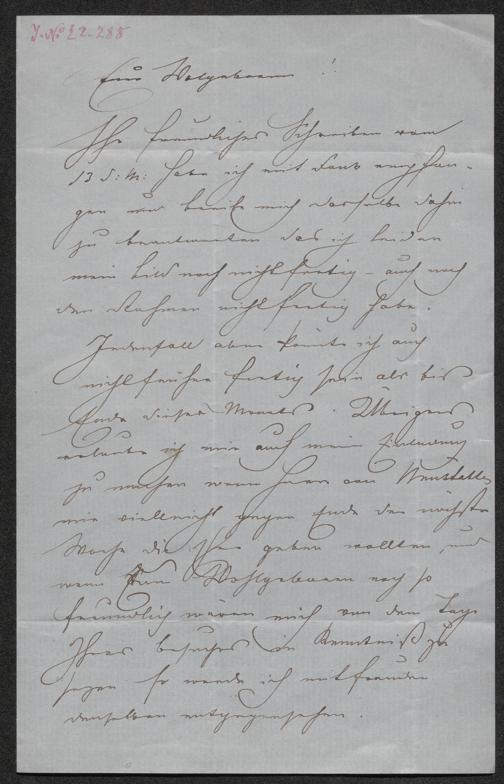 J. No 22-288
Euer Wolgeboren!
Ihr freundliches Schreiben vom
13 d: M: habe ich mit Dank empfan-
gen und beeile mich dasselbe dahin
zu beantworten das ich leider
mein Bild noch nicht fertig – auch noch
den Rahmen nicht fertig habe.
Jedenfall aber könnte ich auch
nicht früher fertig sein als bis
Ende dieses Monats. Übrigens
erlaube ich mir auch meine Einladung
zu machen wenn Herr von
mir vielleicht gegen Ende der nächsten
Woche die Ehre geben wollten, und
wenn Euer Wohlgeboren noch so
freundlich wären mich von dem Tage
Ihres Besuches in Kenntniß zu
sezen so werde ich mit Freuden
demselben entgegensehen.